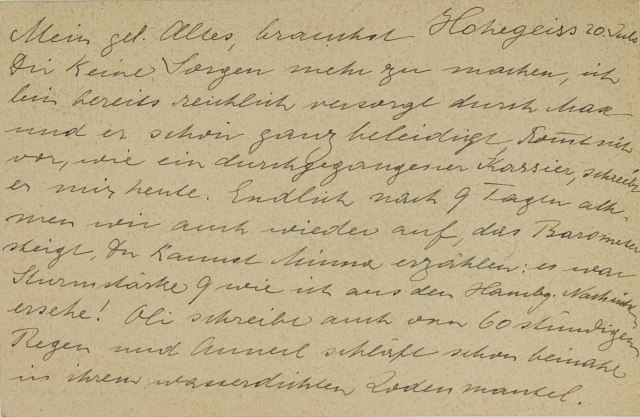 Mein gel. Altes, brauchst Hohegeiss 20. Juli
Dir keine Sorgen mehr zu machen, ich
bin bereits reichlich versorgt durch Max
und er schon ganz beleidigt, kommst mir
vor, wie ein durchgegangener Kassier, schreibt
er mir heute. Endlich nach 9 Tagen ath-
men wir auch wieder auf, das Barometer
steigt, Du kannst Minna erzählen: es war
Sturmstärke 9 wie ich aus den Hambg. Nachrichten
ersehe! Oli schreibt auch von 60 stündigem
Regen und Annerl schläft schon beinahe
in ihrem wasserdichten Lodenmantel.